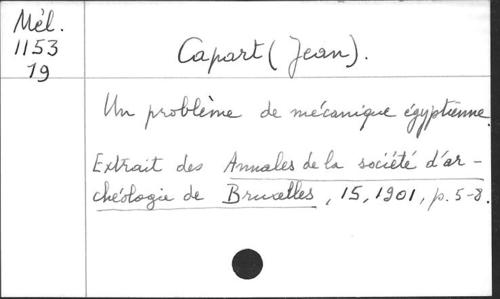 Mél.
1153
19
Capart (Jean).
Un problème de mécanique égyptienne.
Extrait des Annales de la société d'ar-
chéologie de Bruxelles, 15, 1901, p. 5-8.